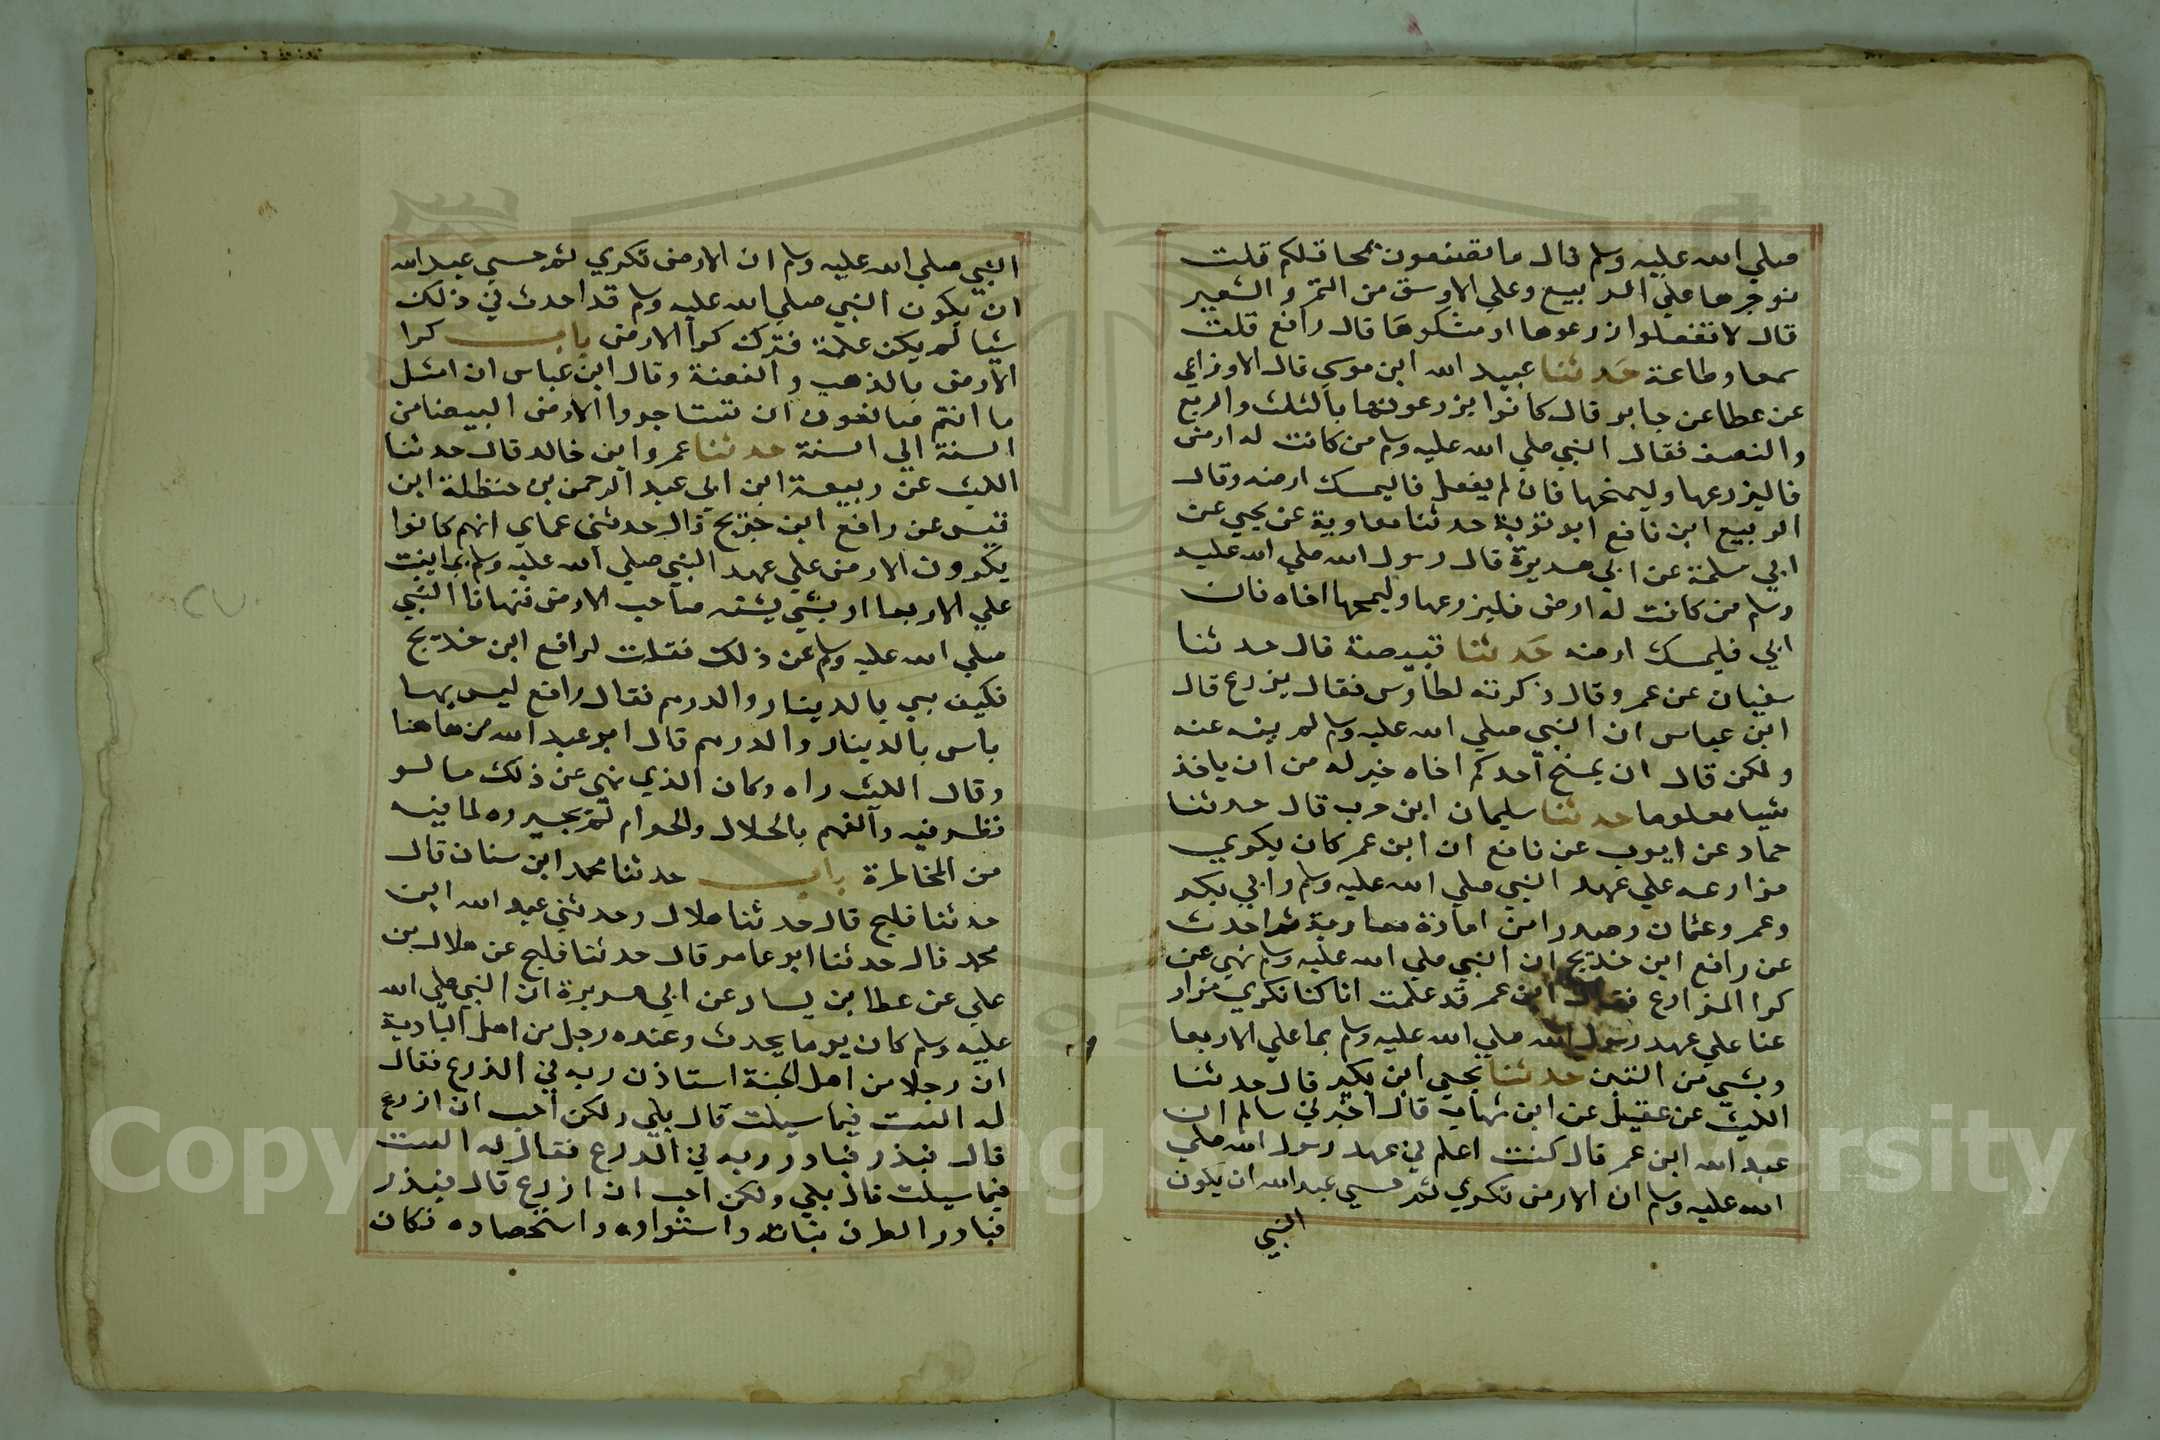 صلي الله عليه وسلم قال ما تصنعون بمحاقلكم قلت
نوجرها علي الربيع وعلي الاوسق من التمر والشعير
قال لا تفعلوا ازرعوها او مسكوها قال رافع قلت
سمعا وطاعة حدثنا عبيد الله ابن موسي قال الاوزاعي
عن عطا عن جابر قال كانوا يزرعونها بالثلث والربع
والنصف فقال النبي صلي الله عليه وسلم من كانت له ارض
فاليزرعها وليمنحها فان لم يفعل فاليمسك ارضه وقال
الربيع ابن نافع ابو توبة حدثنا معاوية عن يحيي عن
ابي سلمة عن ابي هريرة قال رسول الله صلي الله عليه
وسلم من كانت له ارض فليزرعها وليمنحها اخاه فان
ابي فليمسك ارضه حدثنا قبيصة قال حدثنا
سفيان عن عمرو قال ذكرته لطاوس فقال يزرع قال
ابن عباس ان النبي صلي الله عليه وسلم لم ينه عنه
ولكن قال ان يمنح احدكم اخاه خير له من ان ياخذ
شيا معلوما حدثنا سليمان ابن حرب قال حدثنا
حماد عن ايوب عن نافع ان ابن عمر كان يكري
مزارعه علي عهد النبي صلي الله عليه وسلم وابي بكر
وعمر وعثمان وصدرا من امارة معاوية ثم احدث
عن رافع ابن خديج ان النبي صلي الله عليه وسلم نهي عن
كرا المزارع فقال ابن عمر قد علمت انا كنا نكري مزار
عنا علي عهد رسول الله صلي الله عليه وسلم بما علي الاربعا
وبشي من التبن حدثنا يحيي ابن بكير قال حدثنا
الليث عن عقيل عن ابن شهاب قال اخبرني سالم ان
عبد الله ابن عمر قال كنت اعلم في عهد رسول الله صلي
الله عليه وسلم ان الارض تكري ثم خسي عبد الله ان يكون
النبي
النبي صلي الله عليه وسلم ان الارض تكري ثم خسي عبد الله
ان يكون النبي صلي الله عليه وسلم قد احدث في ذلك
شيا لم يكن علمة فترك كرا الارض باب كرا
الارض بالذهب والفضة وقال ابن عباس ان امثل
ما انتم صانعون ان تستاجروا الارض البيضا من
السنة الي السنة حدثنا عمرو ابن خالد قال حدثنا
الليث عن ربيعة ابن ابي عبد الرحمن بن حنظلة ابن
قيس عن رافع ابن خديج قال حدثني عماي انهم كانوا
يكرون الارض علي عهد النبي صلي الله عليه وسلم بما ينبت
علي الاربعا او بشي يستثنه صاحب الارض فنهانا النبي
صلي الله عليه وسلم عن ذلك فقلت لرافع ابن خديج
فكيف هي بالدينار والدرهم فقال رافع ليس بها
باس بالدينار والدرهم قال ابو عبد الله من هاهنا
وقال الليث راه وكان الذي نهي عن ذلك ما لو
نظر فيه والفهم بالحلال والحرام لم يجيزوه لما فيه
من المخاطرة باب حدثنا محمد ابن سنان قال
حدثنا فليح قال حدثنا هلال وحدثني عبد الله ابن
محمد قال حدثنا ابو عامر قال حدثنا فليح عن هلال بن
علي عن عطا بن يسار عن ابي هريرة ان النبي صلي الله
عليه وسلم كان يوما يحدث وعنده رجل من اهل البادية
ان رجلا من اهل الجنة استاذن ربه في الزرع فقال
له الست فيما سيلت قال بلي ولكن احب ان ازرع
قال فبذر فبادر ربه في الزرع فقال له الست
فيما سيلت قال بلي ولكن احب ان ازرع قال فبذر
فبادر الطرف نباته واستواوه واستحصاده فكان
Copyright © King Saud University